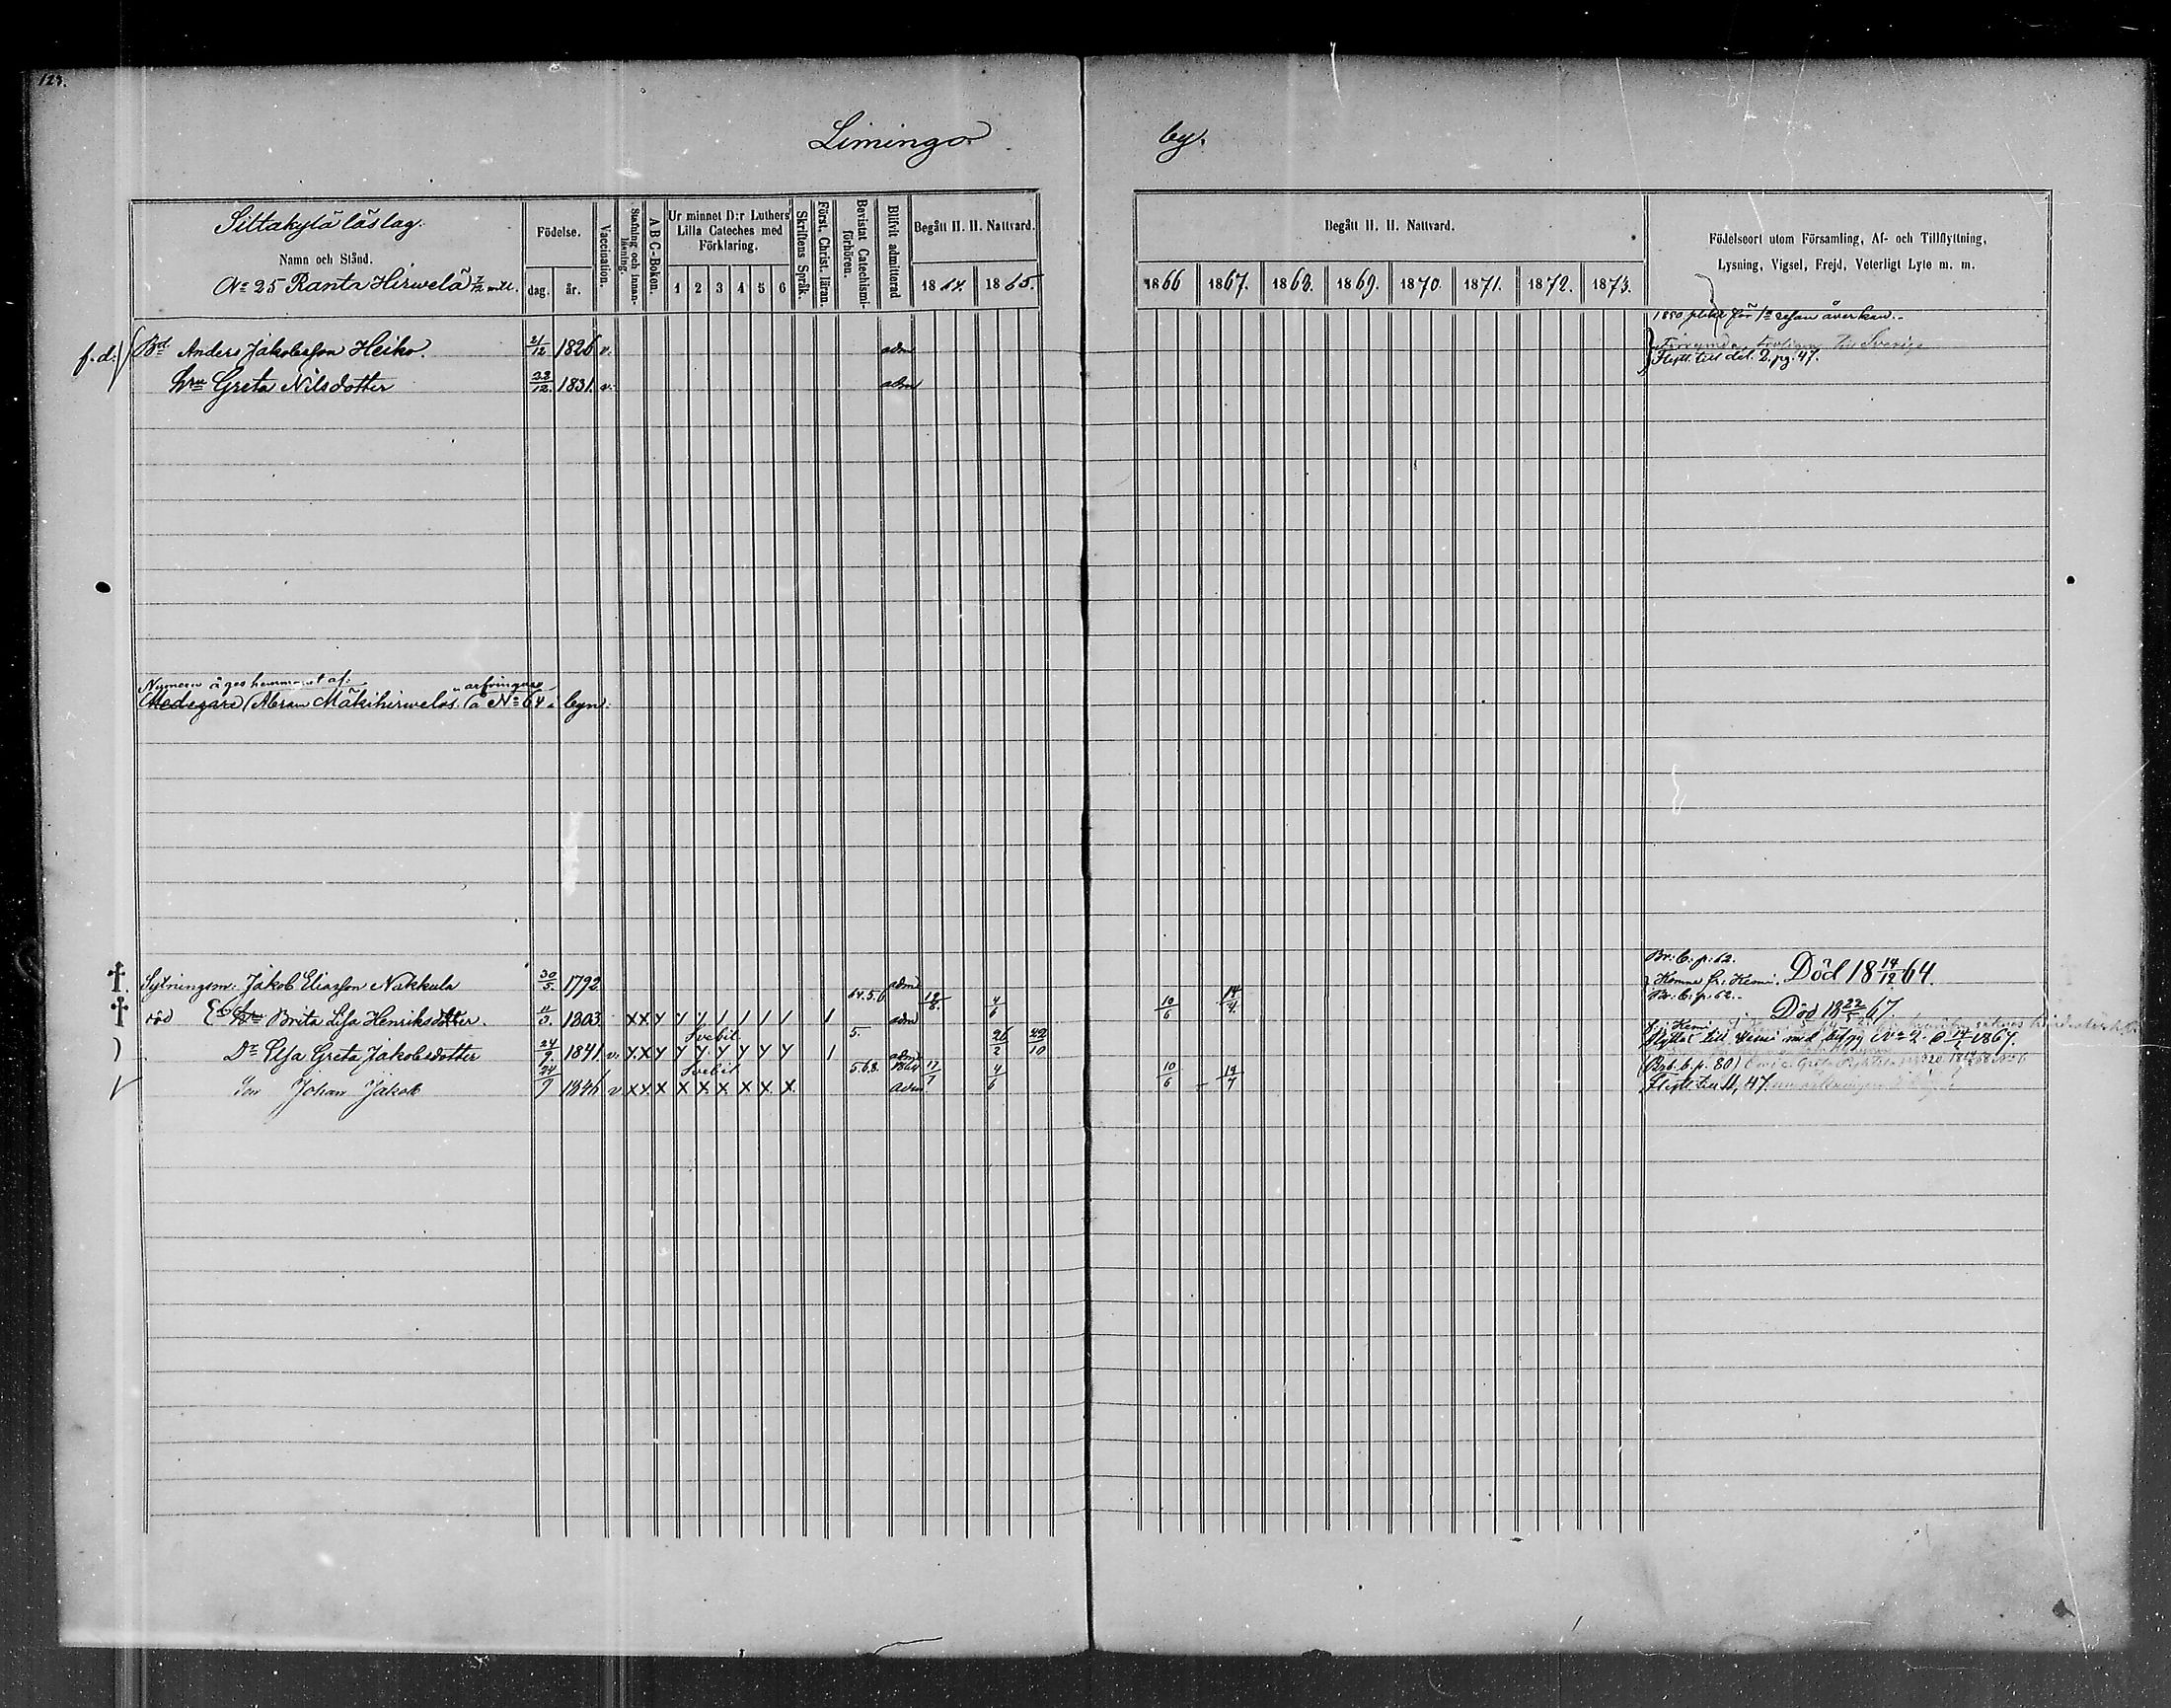 123.
Limingo by.
Sittakylä läslag.
Namn och Stånd.
No 25 Ranta Hirwelä 7/72 mtl.
Födelse.
dag. år.
Vaccination.
Stafning och innanläsning.
A B C-Boken.
Ur minnet D:r Luthers Lilla Cateches med Förklaring.
1 2 3 4 5 6
Skriftens Språk.
Först. Christ. läran.
Bevistat Catechismiförhören.
Blifvit admitterad
Begått H. H. Nattvard.
1864. 1865.
Begått H. H. Nattvard.
1866 1867. 1868. 1869. 1870. 1871. 1872. 1873.
Födelseort utom Församling, Af- och Tillflyttning,
Lysning, Vigsel, Frejd, Veterligt Lyte m. m.
1850 pliktat för 1a resan åverkan.
f. d. Bd Anders Jakobsson Heiko. 21/12 1826 v. adm
till Sverige
Flytt. till del. 2, pg. 47.
hru Greta Nilsdotter 23/12. 1831. v. adm
Numera äges hemmanet af:
arfvingar
Medegare Abram Mäkihirwelas å No 64 i byn.
Br. b. p. 62.
Sytningsm. Jakob Eliasson Nakkula 30/5. 1792 adm
Komne fr. Kemi. Död 18 14/12 64.
Br. b. p. 62.
64.5.6 18/8. 4/6 10/6 14/4.
Enk. hru Brita Lisa Henriksdotter. 11/3. 1803 x x y y y / / / / / adm
Död 18 22/5 67.
Svebil. 5. 26/2 22/10
f. i Kemi
Dr Lisa Greta Jakobsdotter 24/9. 1841 v. y x y y y y y y y / adm
Flyttat till Kemi med betyg No 2. d 14/2 1867.
Svebil 5.6.8. 1864 17/7 4/6 10/6 14/7
(Brb. b. p. 80)
Son Johan Jakob 24/7 1846 v. x x x x x x x x x adm.
Flytt. till II, 47.